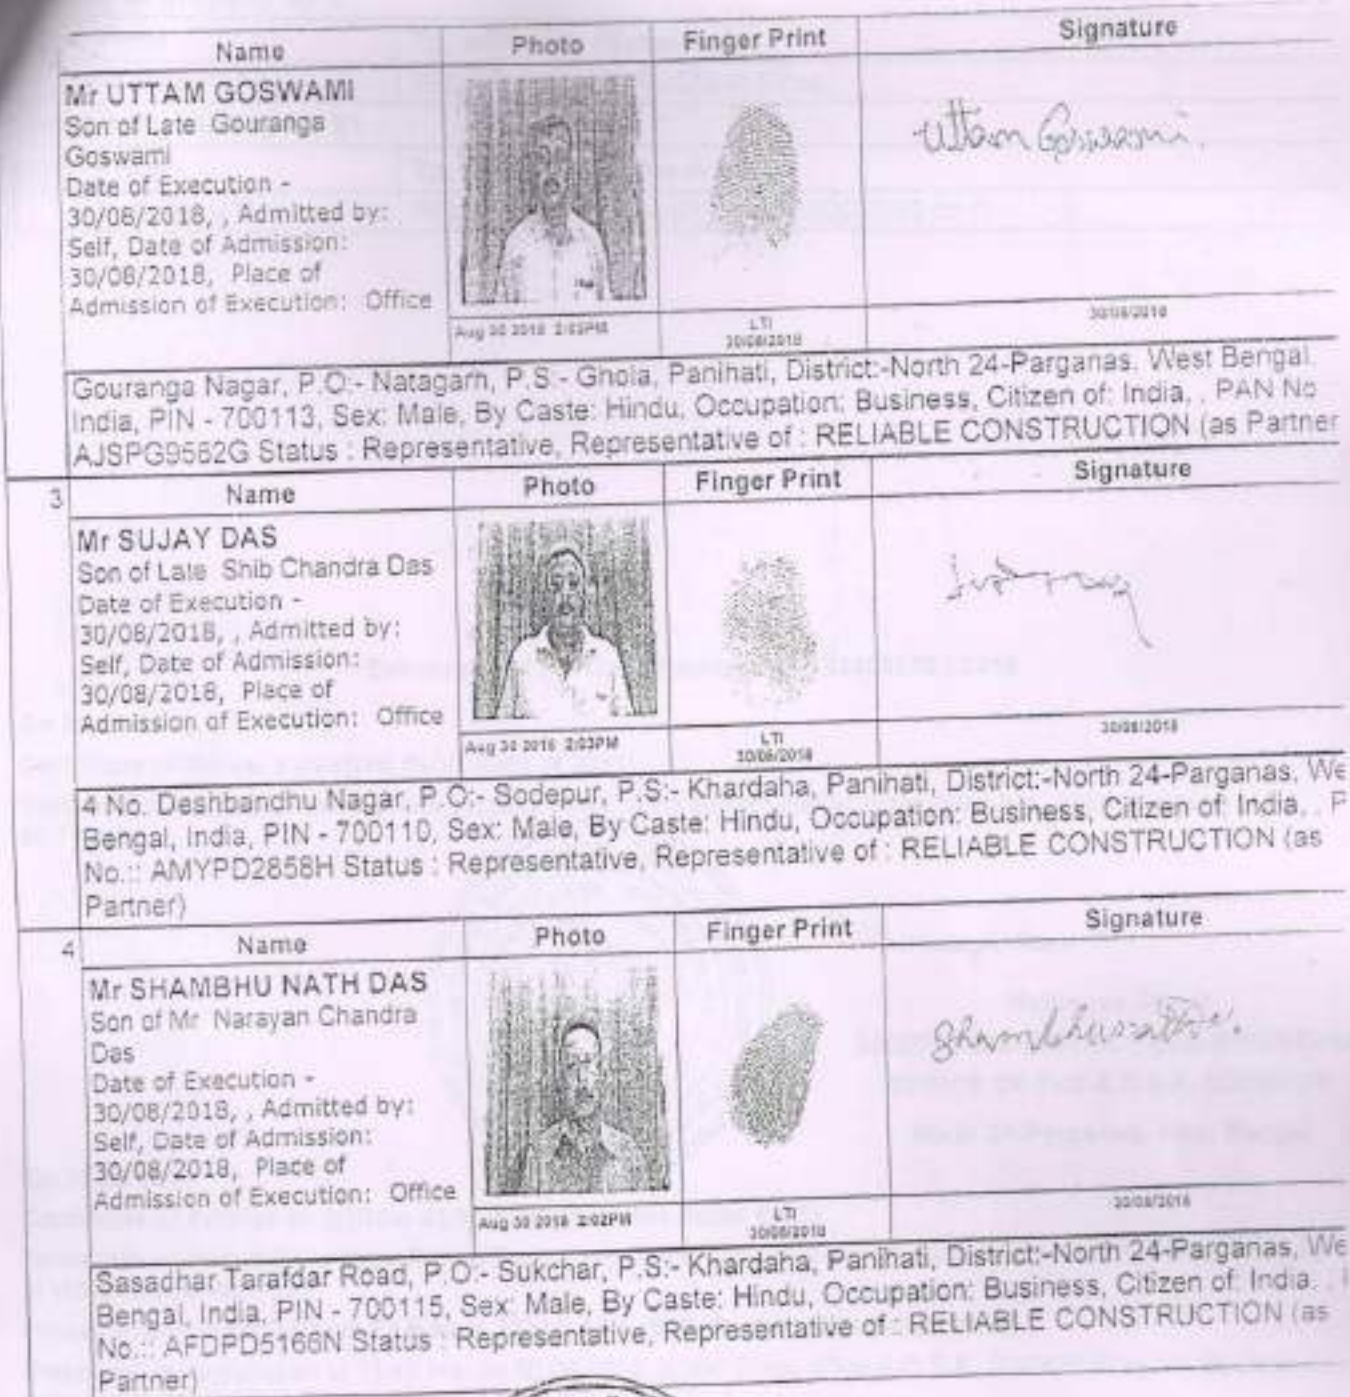 Name Photo Finger Print Signature
Mr UTTAM GOSWAMI
Son of Late Gouranga
Goswami
Date of Execution -
30/08/2018, , Admitted by:
Self, Date of Admission:
30/08/2018, Place of
Admission of Execution: Office
Uttam Goswami.
Aug 30 2018 2:03PM
LTI
30/08/2018
30/08/2018
Gouranga Nagar, P.O:- Natagarh, P.S:- Ghola, Panihati, District:-North 24-Parganas, West Bengal,
India, PIN - 700113, Sex: Male, By Caste: Hindu, Occupation: Business, Citizen of: India, , PAN No
AJSPG9582G Status : Representative, Representative of : RELIABLE CONSTRUCTION (as Partner
3 Name Photo Finger Print Signature
Mr SUJAY DAS
Son of Late Shib Chandra Das
Date of Execution -
30/08/2018, , Admitted by:
Self, Date of Admission:
30/08/2018, Place of
Admission of Execution: Office
Aug 30 2018 2:03PM
LTI
30/08/2018
30/08/2018
4 No. Deshbandhu Nagar, P.O:- Sodepur, P.S:- Khardaha, Panihati, District:-North 24-Parganas, We
Bengal, India, PIN - 700110, Sex: Male, By Caste: Hindu, Occupation: Business, Citizen of: India, , P
No.:: AMYPD2858H Status : Representative, Representative of : RELIABLE CONSTRUCTION (as
Partner)
4 Name Photo Finger Print Signature
Mr SHAMBHU NATH DAS
Son of Mr Narayan Chandra
Das
Date of Execution -
30/08/2018, , Admitted by:
Self, Date of Admission:
30/08/2018, Place of
Admission of Execution: Office
Aug 30 2018 2:02PM
LTI
30/08/2018
30/08/2018
Sasadhar Tarafdar Road, P.O:- Sukchar, P.S:- Khardaha, Panihati, District:-North 24-Parganas, We
Bengal, India, PIN - 700115, Sex: Male, By Caste: Hindu, Occupation: Business, Citizen of: India, ,
No.:: AFDPD5166N Status : Representative, Representative of : RELIABLE CONSTRUCTION (as
Partner)